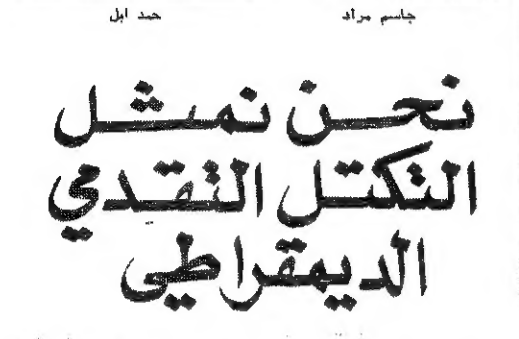 جاسم مراد حمد ابل
نحن نمثل
التكتل النقدمي
الديمقراطي